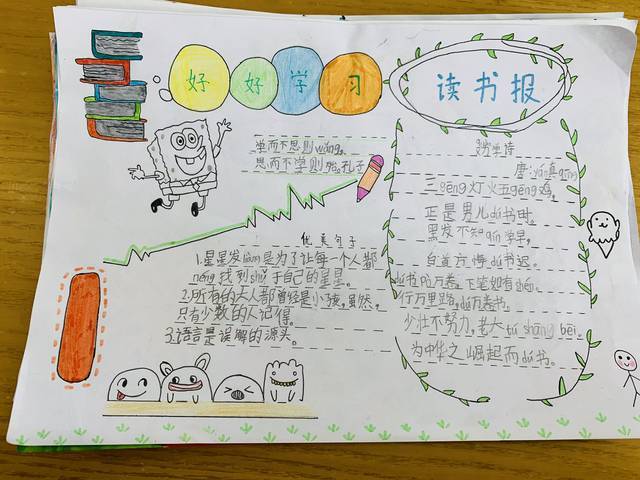 好好学习
读书报
学而不思则wǎng,
思而不学则殆。孔子
优美句子
1.星星发liàng是为了让每一个人都
néng找到shǔ于自己的星星。
2.所有的大人都曾经是小孩,虽然,
只有少数的人记得。
3.语言是误解的源头。
劝学诗
唐:yán真qīng
三gēng灯火五gēng鸡,
正是男儿dú书时。
黑发不知qín学早,
白首方悔dú书迟。
dú书破万卷,下笔如有shén。
行万里路,dú万卷书。
少壮不努力,老大tú shāng bēi。
为中华之崛起而dú书。